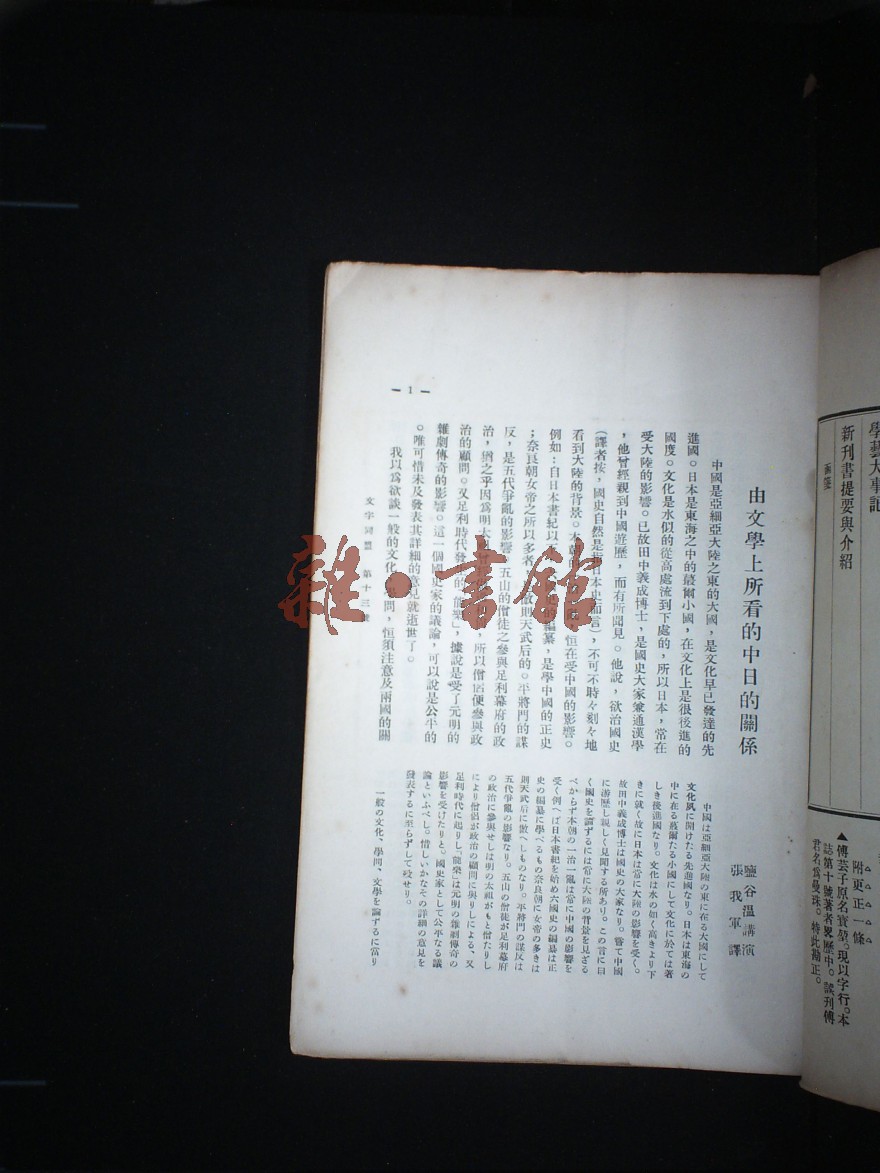 學藝大事記
新刊書提要與介紹
▲附更正一條
傅芸子原名寶堃。現以字行。本
誌第十號著者畧歷中。誤刊傅
君名爲曼殊。特此勘正。
由文學上所看的中日的關係
鹽谷溫講演
張我軍譯
中國是亞細亞大陸之東的大國，是文化早已發達的先
進國。日本是東海之中的蕞爾小國，在文化上是很後進的
國度。文化是水似的從高處流到下處的，所以日本，常在
受大陸的影響。已故田中義成博士，是國史大家兼通漢學
，他曾經親到中國遊歷，而有所聞見。他說，欲治國史
（譯者按，國史自然是指日本史而言），不可不時々刻々地
看到大陸的背景。本朝 恒在受中國的影響。
例如：自日本書紀以 編纂，是學中國的正史
；奈良朝女帝之所以多者， 則天武后的。平將門的謀
反，是五代爭亂的影響。五山的僧徒之參與足利幕府的政
治，猶之乎因爲明太祖 ，所以僧侶便參與政
治的顧問。又足利時代發 的「能樂」，據說是受了元明的
雜劇傳奇的影響。這一個國史家的議論，可以說是公平的
。唯可惜未及發表其詳細的意見就逝世了。
我以爲欲談一般的文化 問，恒須注意及兩國的關
中國は亞細亞大陸の東に在る大國にして
文化夙に開けたる先進國なり。日本は東海の
中に在る蕞爾たる小國にして文化に於ては著
しき後進國なり。文化は水の如く高きより下
きに就く故に日本は常に大陸の影響を受く。
故田中義成博士は國史の大家なり。嘗て中國
に游歷し親しく見聞する所あり。この言に曰
く國史を論ずるには常に大陸の背景を見ざる
べからず本朝の一治一亂は常に中國の影響を
受く例へば日本書紀を始め六國史の編纂は正
史の編纂に學べるもの奈良朝に女帝の多きは
則天武后に傚へしものなり。平將門の謀反は
五代爭亂の影響なり。五山の僧徒が足利幕府
の政治に參與せしは明の太祖がもと僧たりし
により僧侶が政治の顧問に與りしによる、又
足利時代に起りし「能樂」は元明の雜劇傳奇の
影響を受けたりと。國史家として公平なる議
論といふべし。惜しいかなその詳細の意見を
發表するに至らずして歿せり。
一般の文化、學問、文學を論ずるに當り
文字同盟　第十三號
— 1 —
雜·書館